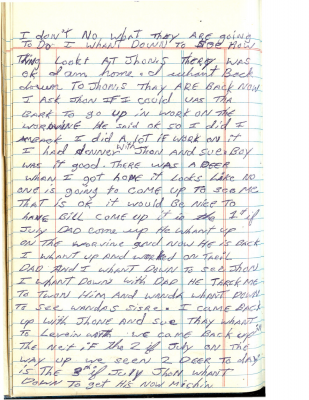 I don't No, what They ARE going
To Do I whant Down To See How
Thing Lookt AT Jhonis They was
ok I am home. I whant Back
down To JHonis Thay ARE BACK NOW
I ASK Jhon IF I could use The
BACK To go up in work on the
He said ok so I did I
I did A LoT if work on it
I had dinner with Jhon And Sue. Boy
was IT good. THERE WAS A DEER
when I goT home iT Looks Like no
one is going To COME UP To see me
THAT is ok iT would BE NICE TO
have Bill come up iT is the 1st if
July DAD come up He whant up
on THE and now HE is Back
I whant up And worked on Trail
DAD And I whant Down To see Jhon
I whant Down with Dad HE
To Town Him and wanda whant Down
To see wandas I came Back
up with Jhone and sue. Thay whant
To we came Back up in
The net if the 2 if July on the
way up we seen 2 DEER To day
is THE if July Jhon whant
Down To get His now